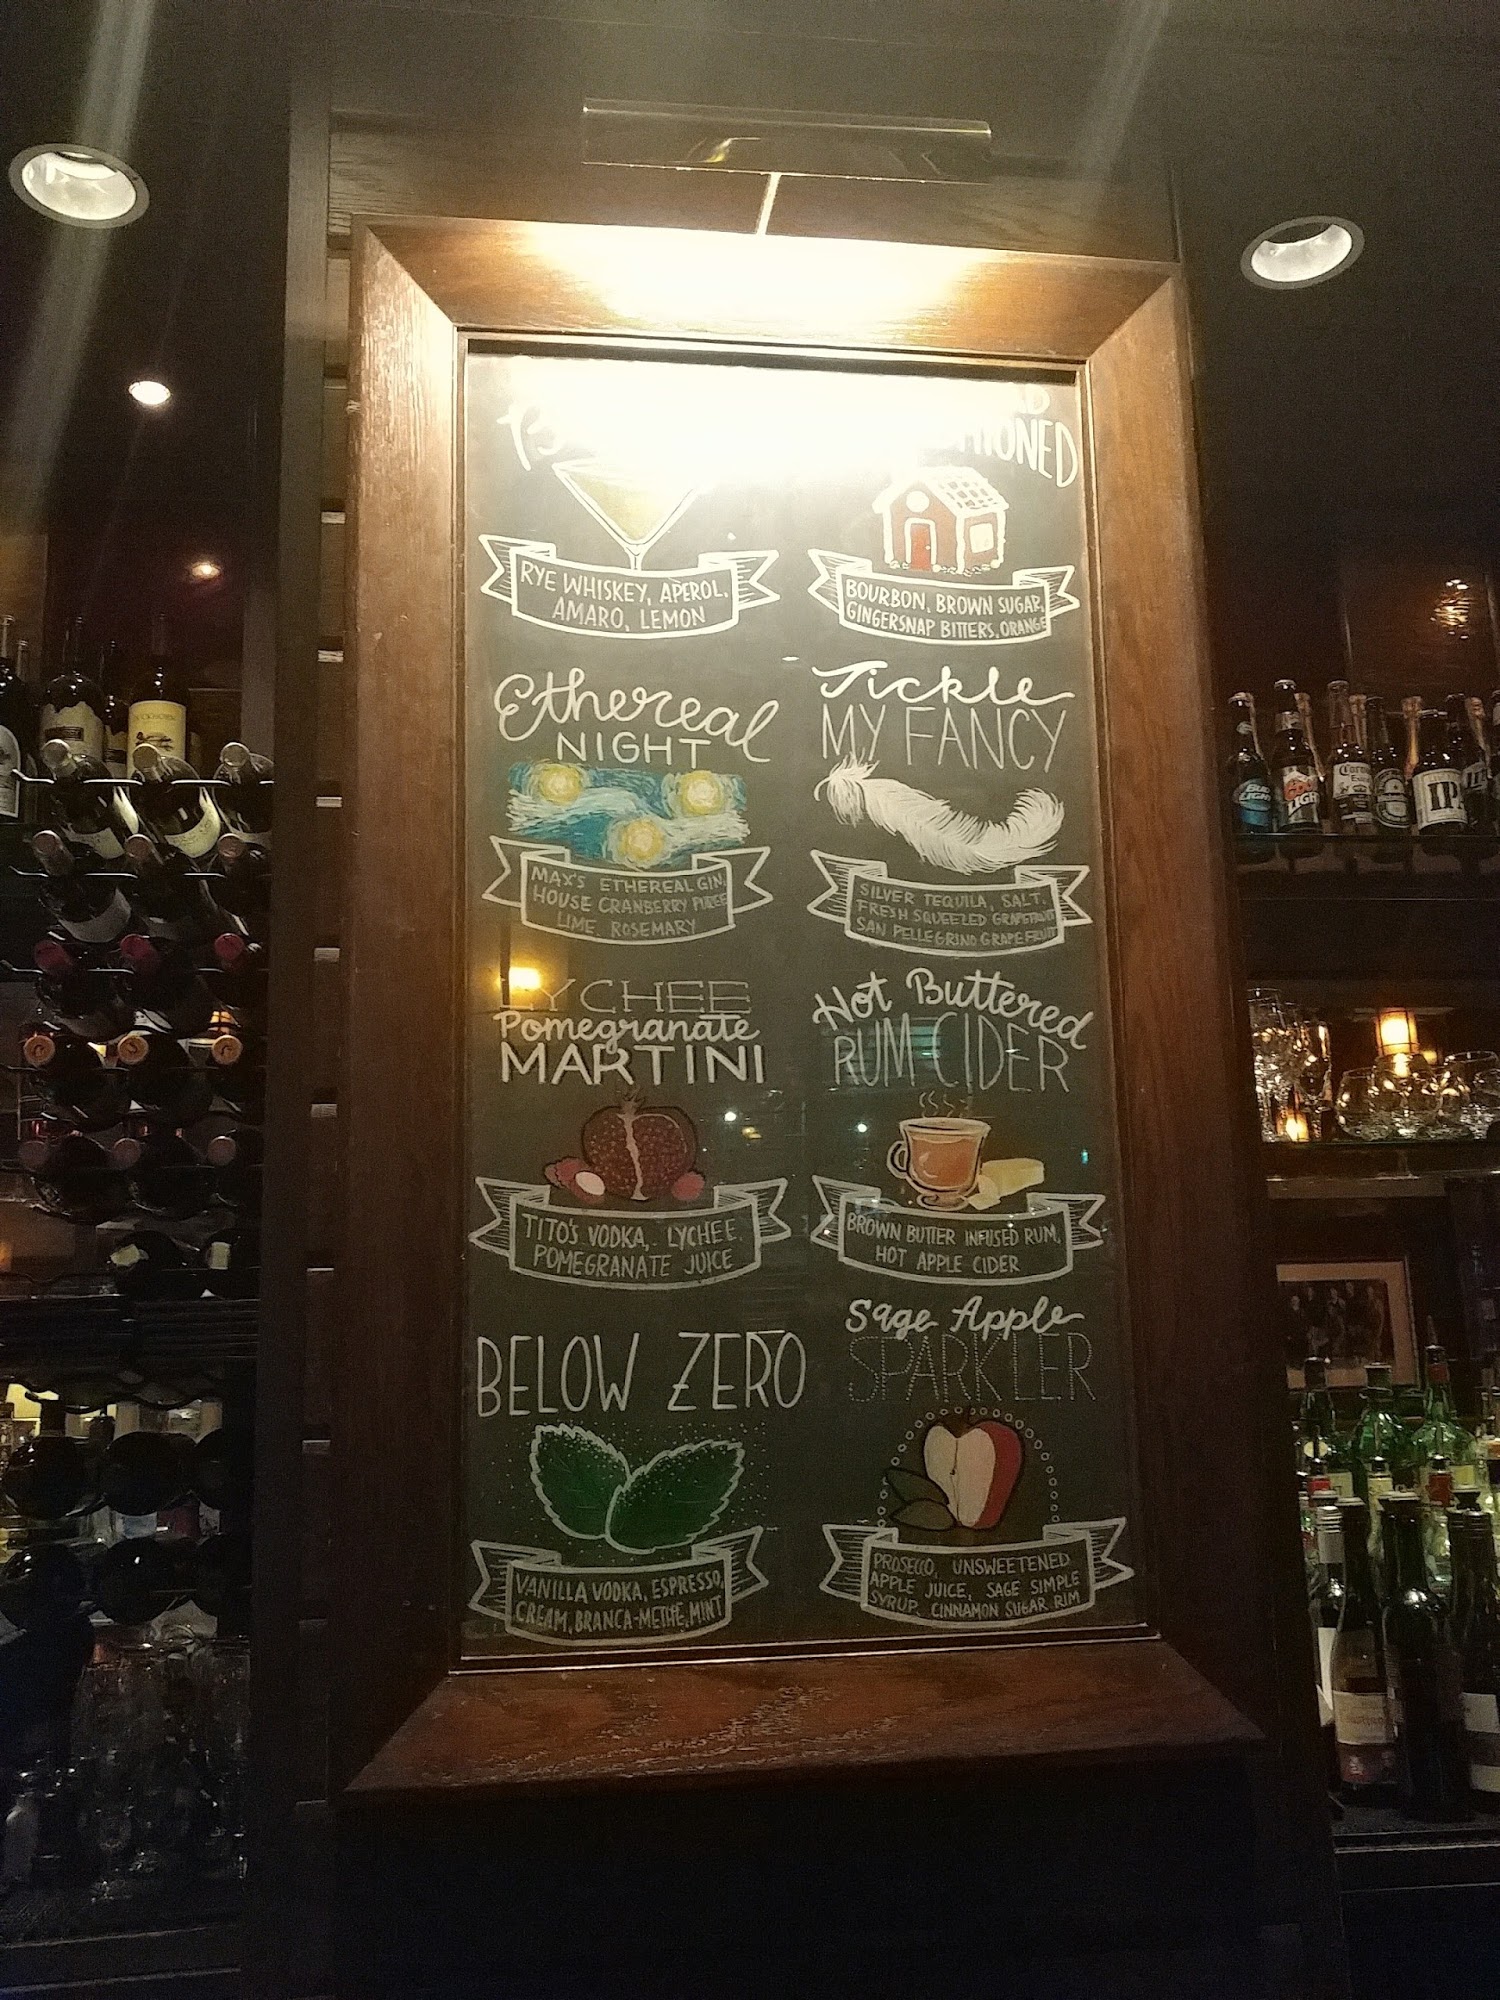 RYE WHISKEY, APEROL,
AMARO, LEMON
BOURBON, BROWN SUGAR,
GINGERSNAP BITTERS, ORANGE
Ethereal
NIGHT
MAX'S ETHEREAL GIN,
HOUSE CRANBERRY PUREE
LIME, ROSEMARY
Tickle
MY FANCY
SILVER TEQUILA, SALT,
FRESH SQUEEZED GRAPEFRUIT
SAN PELLEGRINO GRAPEFRUIT
LYCHEE
Pomegranate
MARTINI
TITO'S VODKA, LYCHEE,
POMEGRANATE JUICE
Hot Buttered
RUM CIDER
BROWN BUTTER INFUSED RUM,
HOT APPLE CIDER
BELOW ZERO
VANILLA VODKA, ESPRESSO,
CREAM, BRANCA-METHE, MINT
Sage Apple
SPARKLER
PROSECCO, UNSWEETENED
APPLE JUICE, SAGE SIMPLE
SYRUP, CINNAMON SUGAR RIM
BUD
LIGHT
Coors
LIGHT
Corona
Extra
IPA